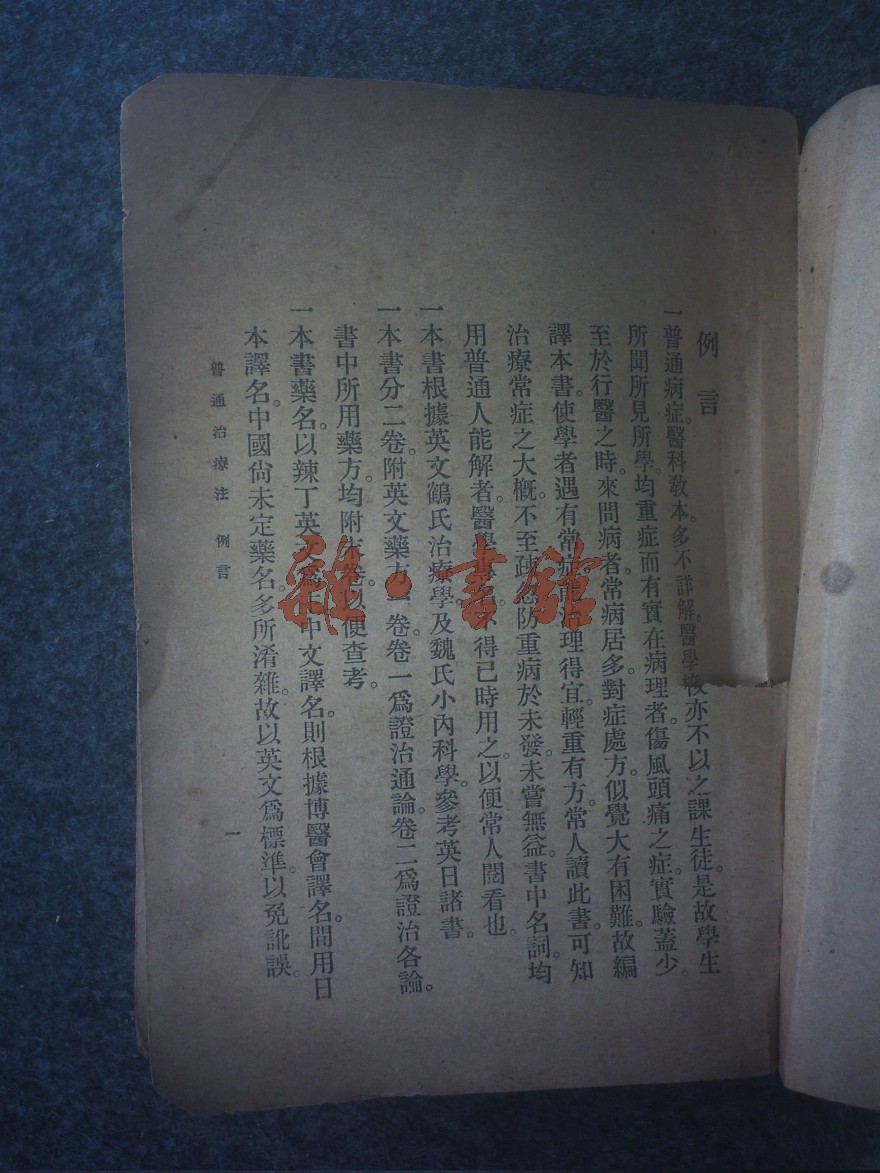 例言
一普通病症。醫科教本。多不詳解。醫學校亦不以之課生徒。是故學生
所聞所見所學。均重症而有實在病理者。傷風頭痛之症。實驗蓋少。
至於行醫之時。來問病者。常病居多。對症處方。似覺大有困難。故編
譯本書。使學者遇有常症而治理得宜。輕重有方。常人讀此書。可知
治療常症之大概。不至疎忽。防重病於未發。未嘗無益。書中名詞。均
用普通人能解者。醫學專名。不得已時用之。以便常人閱看也。
一本書根據英文鶴氏治療學。及魏氏小內科學。參考英日諸書。
一本書分二卷。附英文藥方一卷。卷一爲證治通論。卷二爲證治各論。
書中所用藥方。均附末卷。以便查考。
一本書藥名。以辣丁英文爲主。中文譯名。則根據博醫會譯名。間用日
本譯名。中國尙未定藥名。多所淆雜。故以英文爲標準。以免訛誤。
普通治療法 例言
一
雜·書館